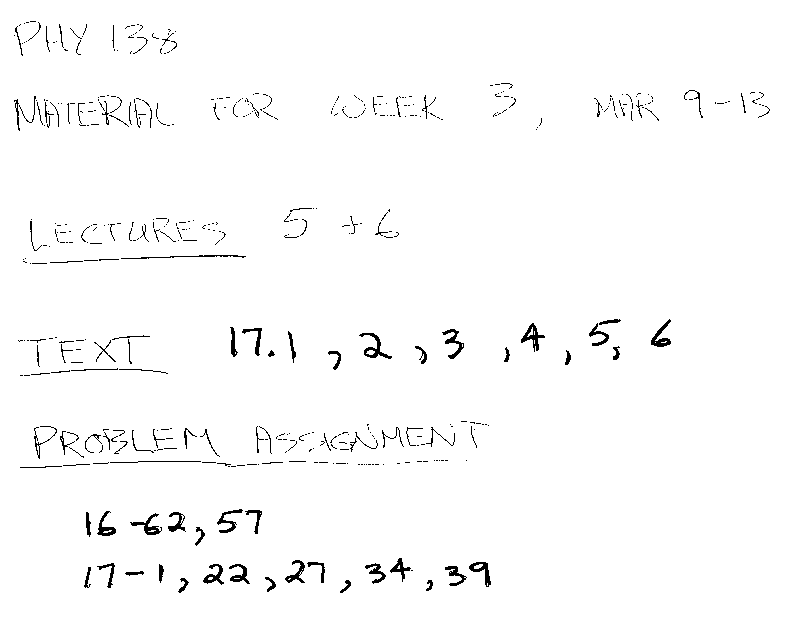 PHY 138
MATERIAL FOR WEEK 3, MAR 9-13
LECTURES 5 + 6
TEXT 17.1, 2, 3, 4, 5, 6
PROBLEM ASSIGNMENT
16-62, 57
17-1, 22, 27, 34, 39